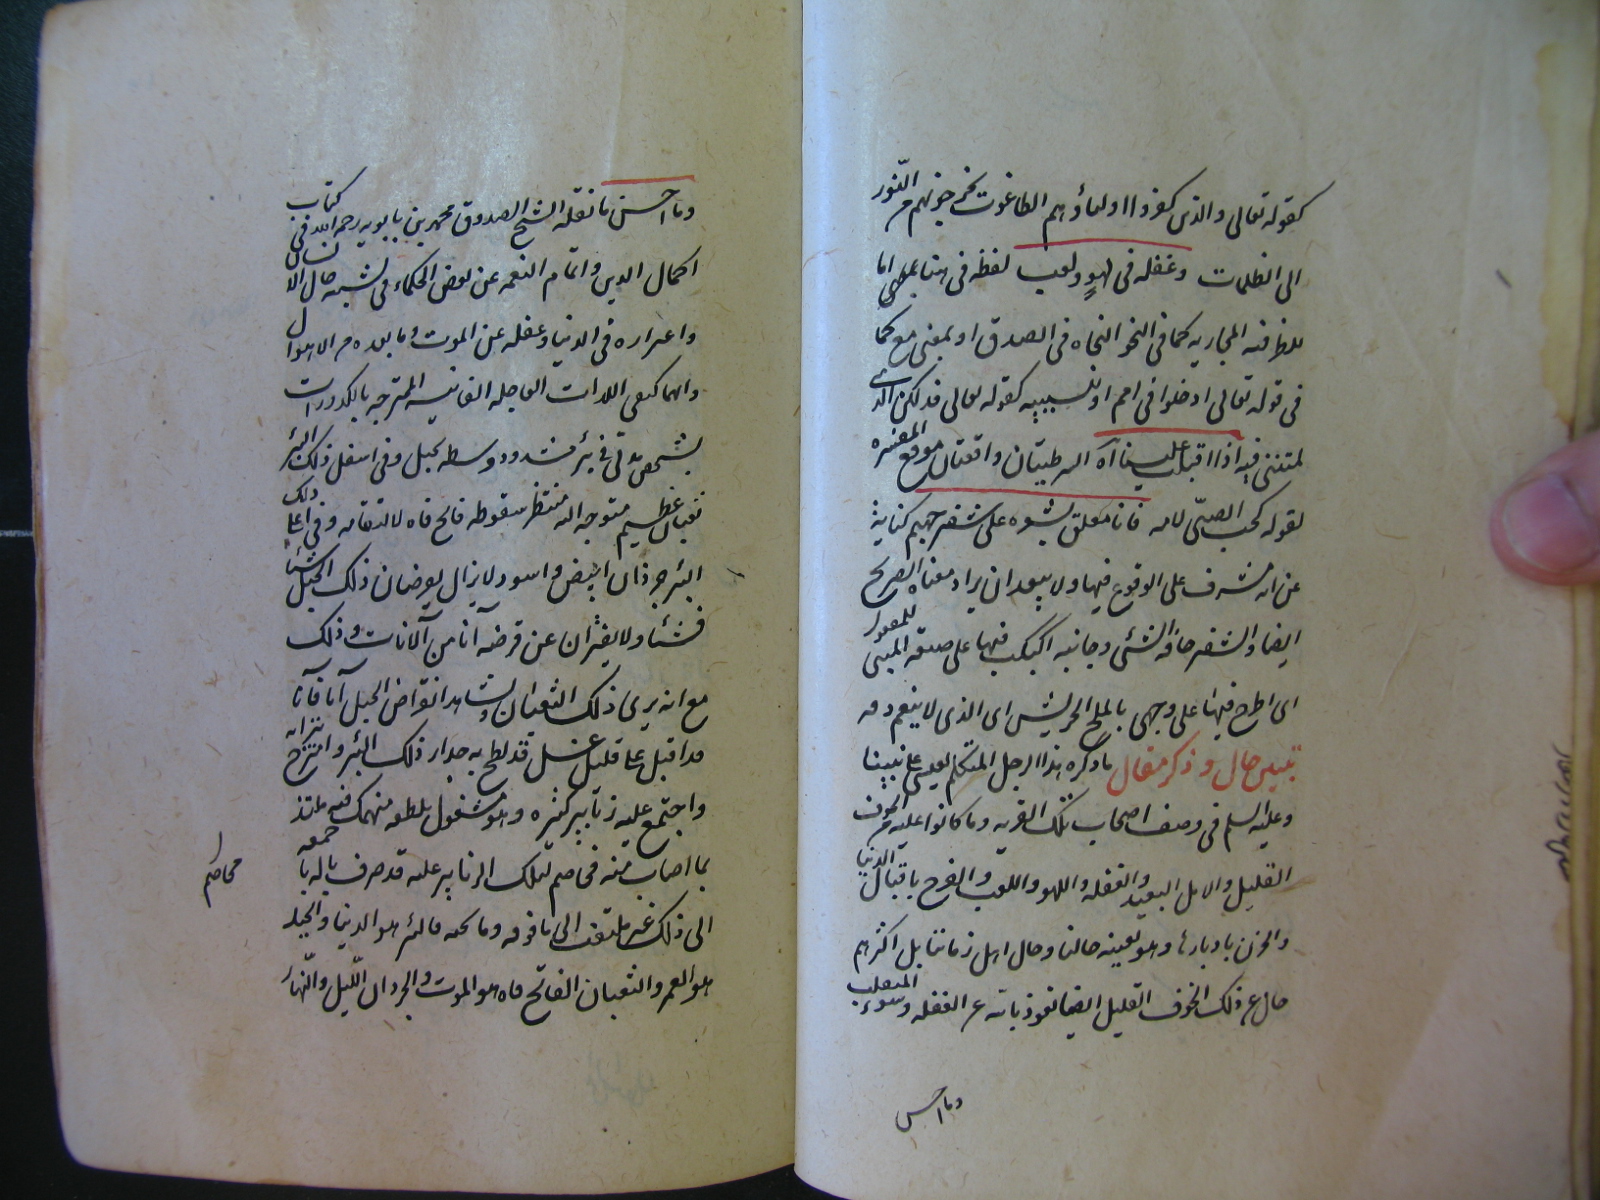 كقوله تعالى والذين كفروا اولياؤهم الطاغوت يخرجونهم من النّور
الى الظلمات وغفلة فى لهوٍ ولعب لفظة فى هنا بمعنى اما
للظرفية المجازية كما فى النحو النجاة فى الصدق او بمعنى مع كما
فى قوله تعالى ادخلوا فى امم او للسببية كقوله تعالى فذلكن الذى
لمتننى فيه اذا اقبلت علينا آه الشرطيتان واقعتان موقع المفسرة
لقوله كحب الصبّى لامه فانا معلق بشعرة على شفير جهنم كناية
عن انه مشرف على الوقوع فيها ولا يبعد ان يراد معناه الصريح
ايضا والشفير حافة الشئ وجانبه اكبكب فيها على صيغة المبنى للمفعول
اى اطرح فيها على وجهى بالملح الجريش اى الذى لا ينعم دقه
تبيين حال وذكر مقال ما ذكره هذا الرجل المتكلم لعيسى على نبينا
وعليه السلم فى وصف اصحاب تلك القرية وما كانوا عليه من الخوف
القليل والامل البعيد والغفلة واللهو واللعب والفرح باقبال الدنيا
والحزن بادبارها وهو بعينه حالنا وحال اهل زماننا بل اكثرهم
خال عن ذلك الخوف القليل ايضا نعوذ بالله من الغفلة وسوء المنقلب
وما احسن
وما احسن ما نقله الشيخ الصدوق محمد بن بابويه رحمه الله فى كتاب
اكمال الدين واتمام النعمة عن بعض الحكماء فى تشبيه حال الانسان
واغتراره فى الدنيا وغفلته عن الموت وما بعده من الاهوال
وانهماكه فى اللذات العاجلة الفانية الممتزجة بالكدورات
بشخص مدلّى فى بئر مشدود وسطه بحبل وفى اسفل ذلك البئر
ثعبان عظيم متوجه اليه منتظر سقوطه فاتح فاه لالتقامه وفى اعلى ذلك
البئر جرذان ابيض واسود لا يزال يعرضان ذلك الحبل شيئا
فشيئا ولا يفتران عن قرضه آنا من الآنات وذلك
مع انه يرى ذلك الثعبان ويشاهد انقراض الحبل آنا فآنا
قد اقبل على قليل عسل قد لطخ به جدار ذلك البئر وامتزج بترابه
واجتمع عليه زنابير كثيرة وهو مشغول بلطعه منهمك فيه ملتذ
بما اصاب منه مخاصم لتلك الزنابير عليه قد صرف باله باجمعه
الى ذلك غير ملتفت الى ما فوقه وما تحته فالبئر هو الدنيا والحبل
هو العمر والثعبان الفاتح فاه هو الموت والجرذان الليل والنهار
مخاصم